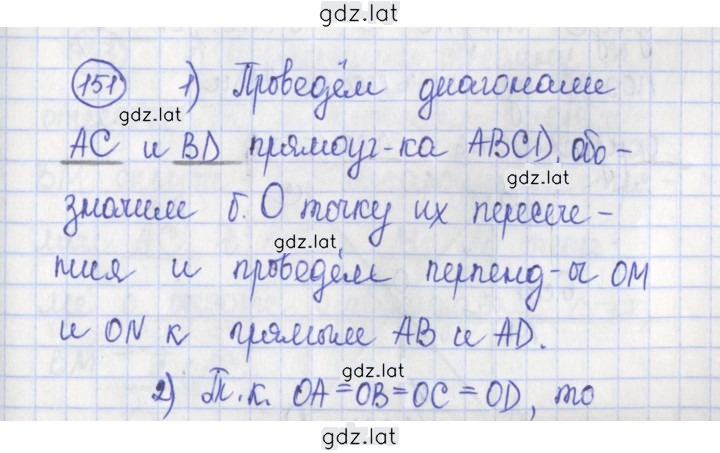 gdz.lat
151 1) Проведём диагонали
gdz.lat
AC и BD прямоуг-ка ABCD, обо-
gdz.lat
значим б. O точку их пересече-
gdz.lat
ния и проведём перпенд-ы OM
и ON к прямым AB и AD.
gdz.lat
2) Т.к. OA=OB=OC=OD, то
gdz.lat